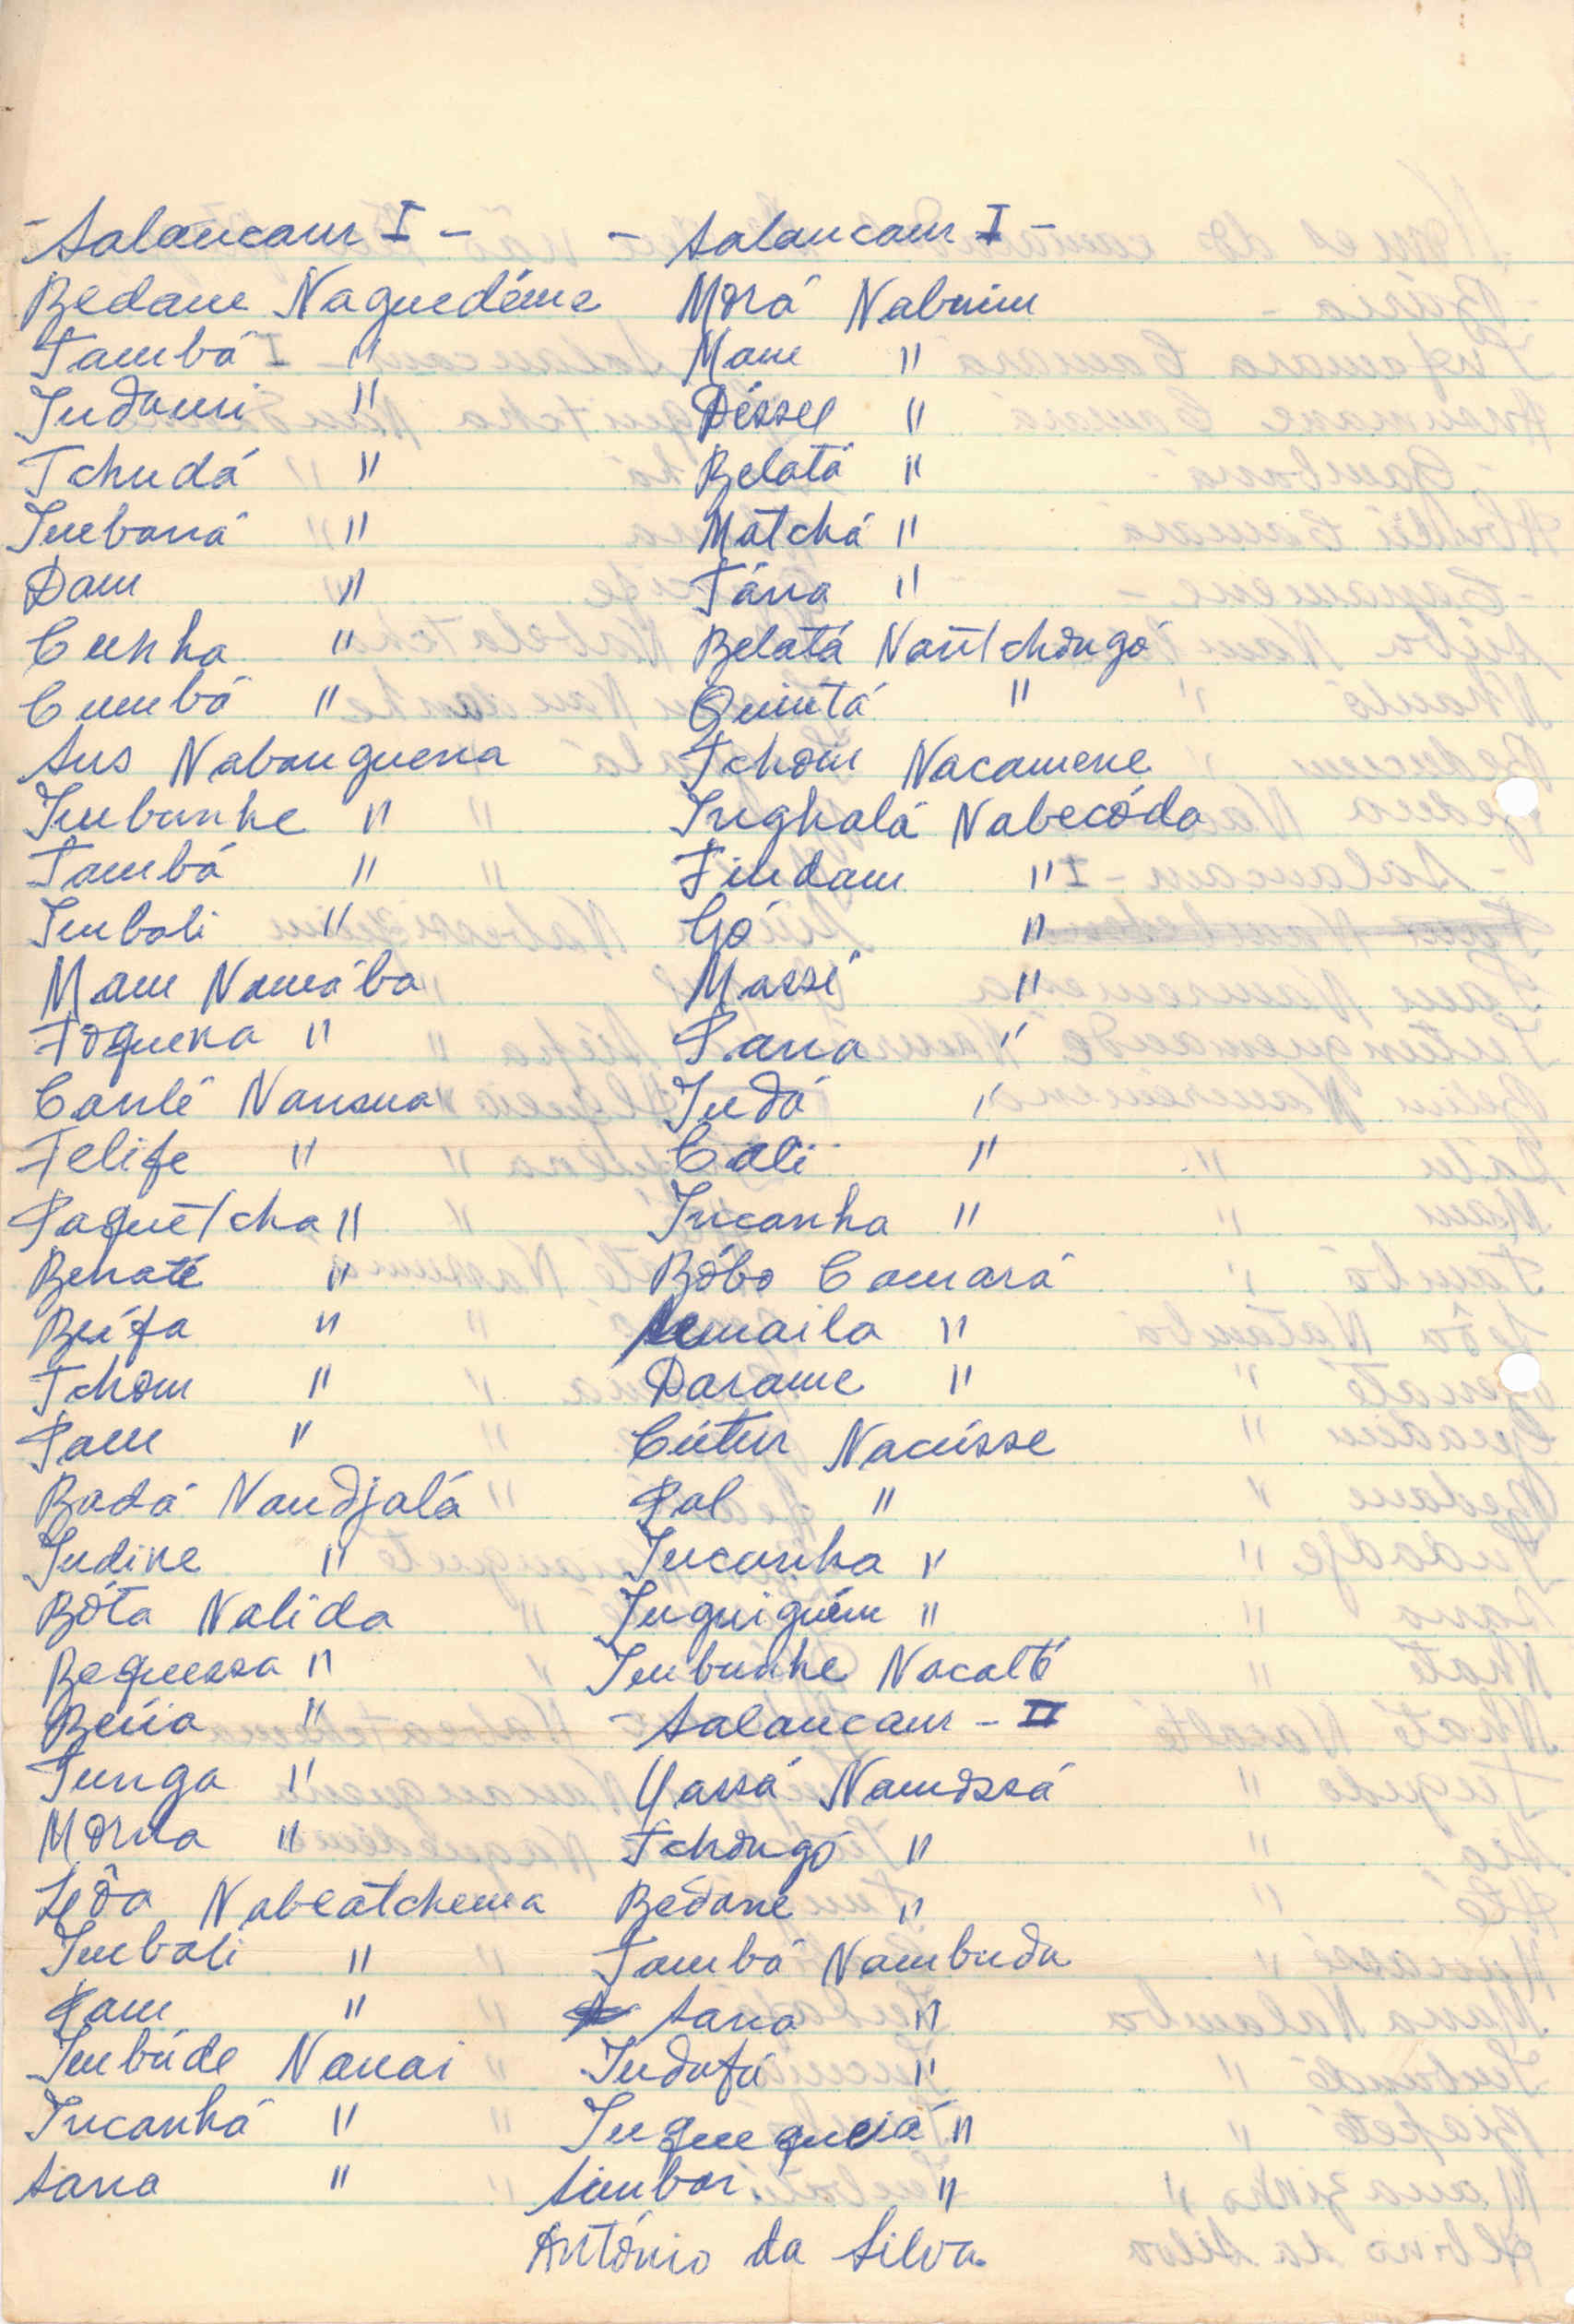 - Salancaur I -
Bedam Naguedéme
Tambá "
Indami "
Tchudá "
Imbaná "
Dam "
Cunha "
Cumbá "
Sus Nabanguena
Imbunhe "
Tambá "
Imbali "
Mam Namába
Toguena "
Canlé Nansua
Felife "
Paquetcha "
Benaté "
Beífa "
Tchom "
Pam "
Badá Nandjalá
Indine "
Bóta Nalida
Bequessa "
Beúa "
Tunga "
Morna "
Leôa Nabeatchema
Imbali "
Pam "
Imbúde Nanai
Incanhá "
Sana "
- Salancaur I -
Morá Nabuim
Mam "
Déssel "
Belatá "
Matchá "
Tána "
Belatá Nantchongó
Quintá "
Tchom Nacamene
Inghalá Nabecóda
Findam "
Gó "
Massé "
Pana "
Indá "
Cali "
Incanha "
Bóbo Camará
Semaila "
Darame "
Cútur Nacússe
Pal "
Incanha "
Inquiguém "
Imbunhe Nacalté
- Salancaur - II
Yassá Namossá
Tchongó "
Bedane "
Tambá Nambuda
Sana "
Indafá "
Inquequeiá "
Simbar "
António da Silva